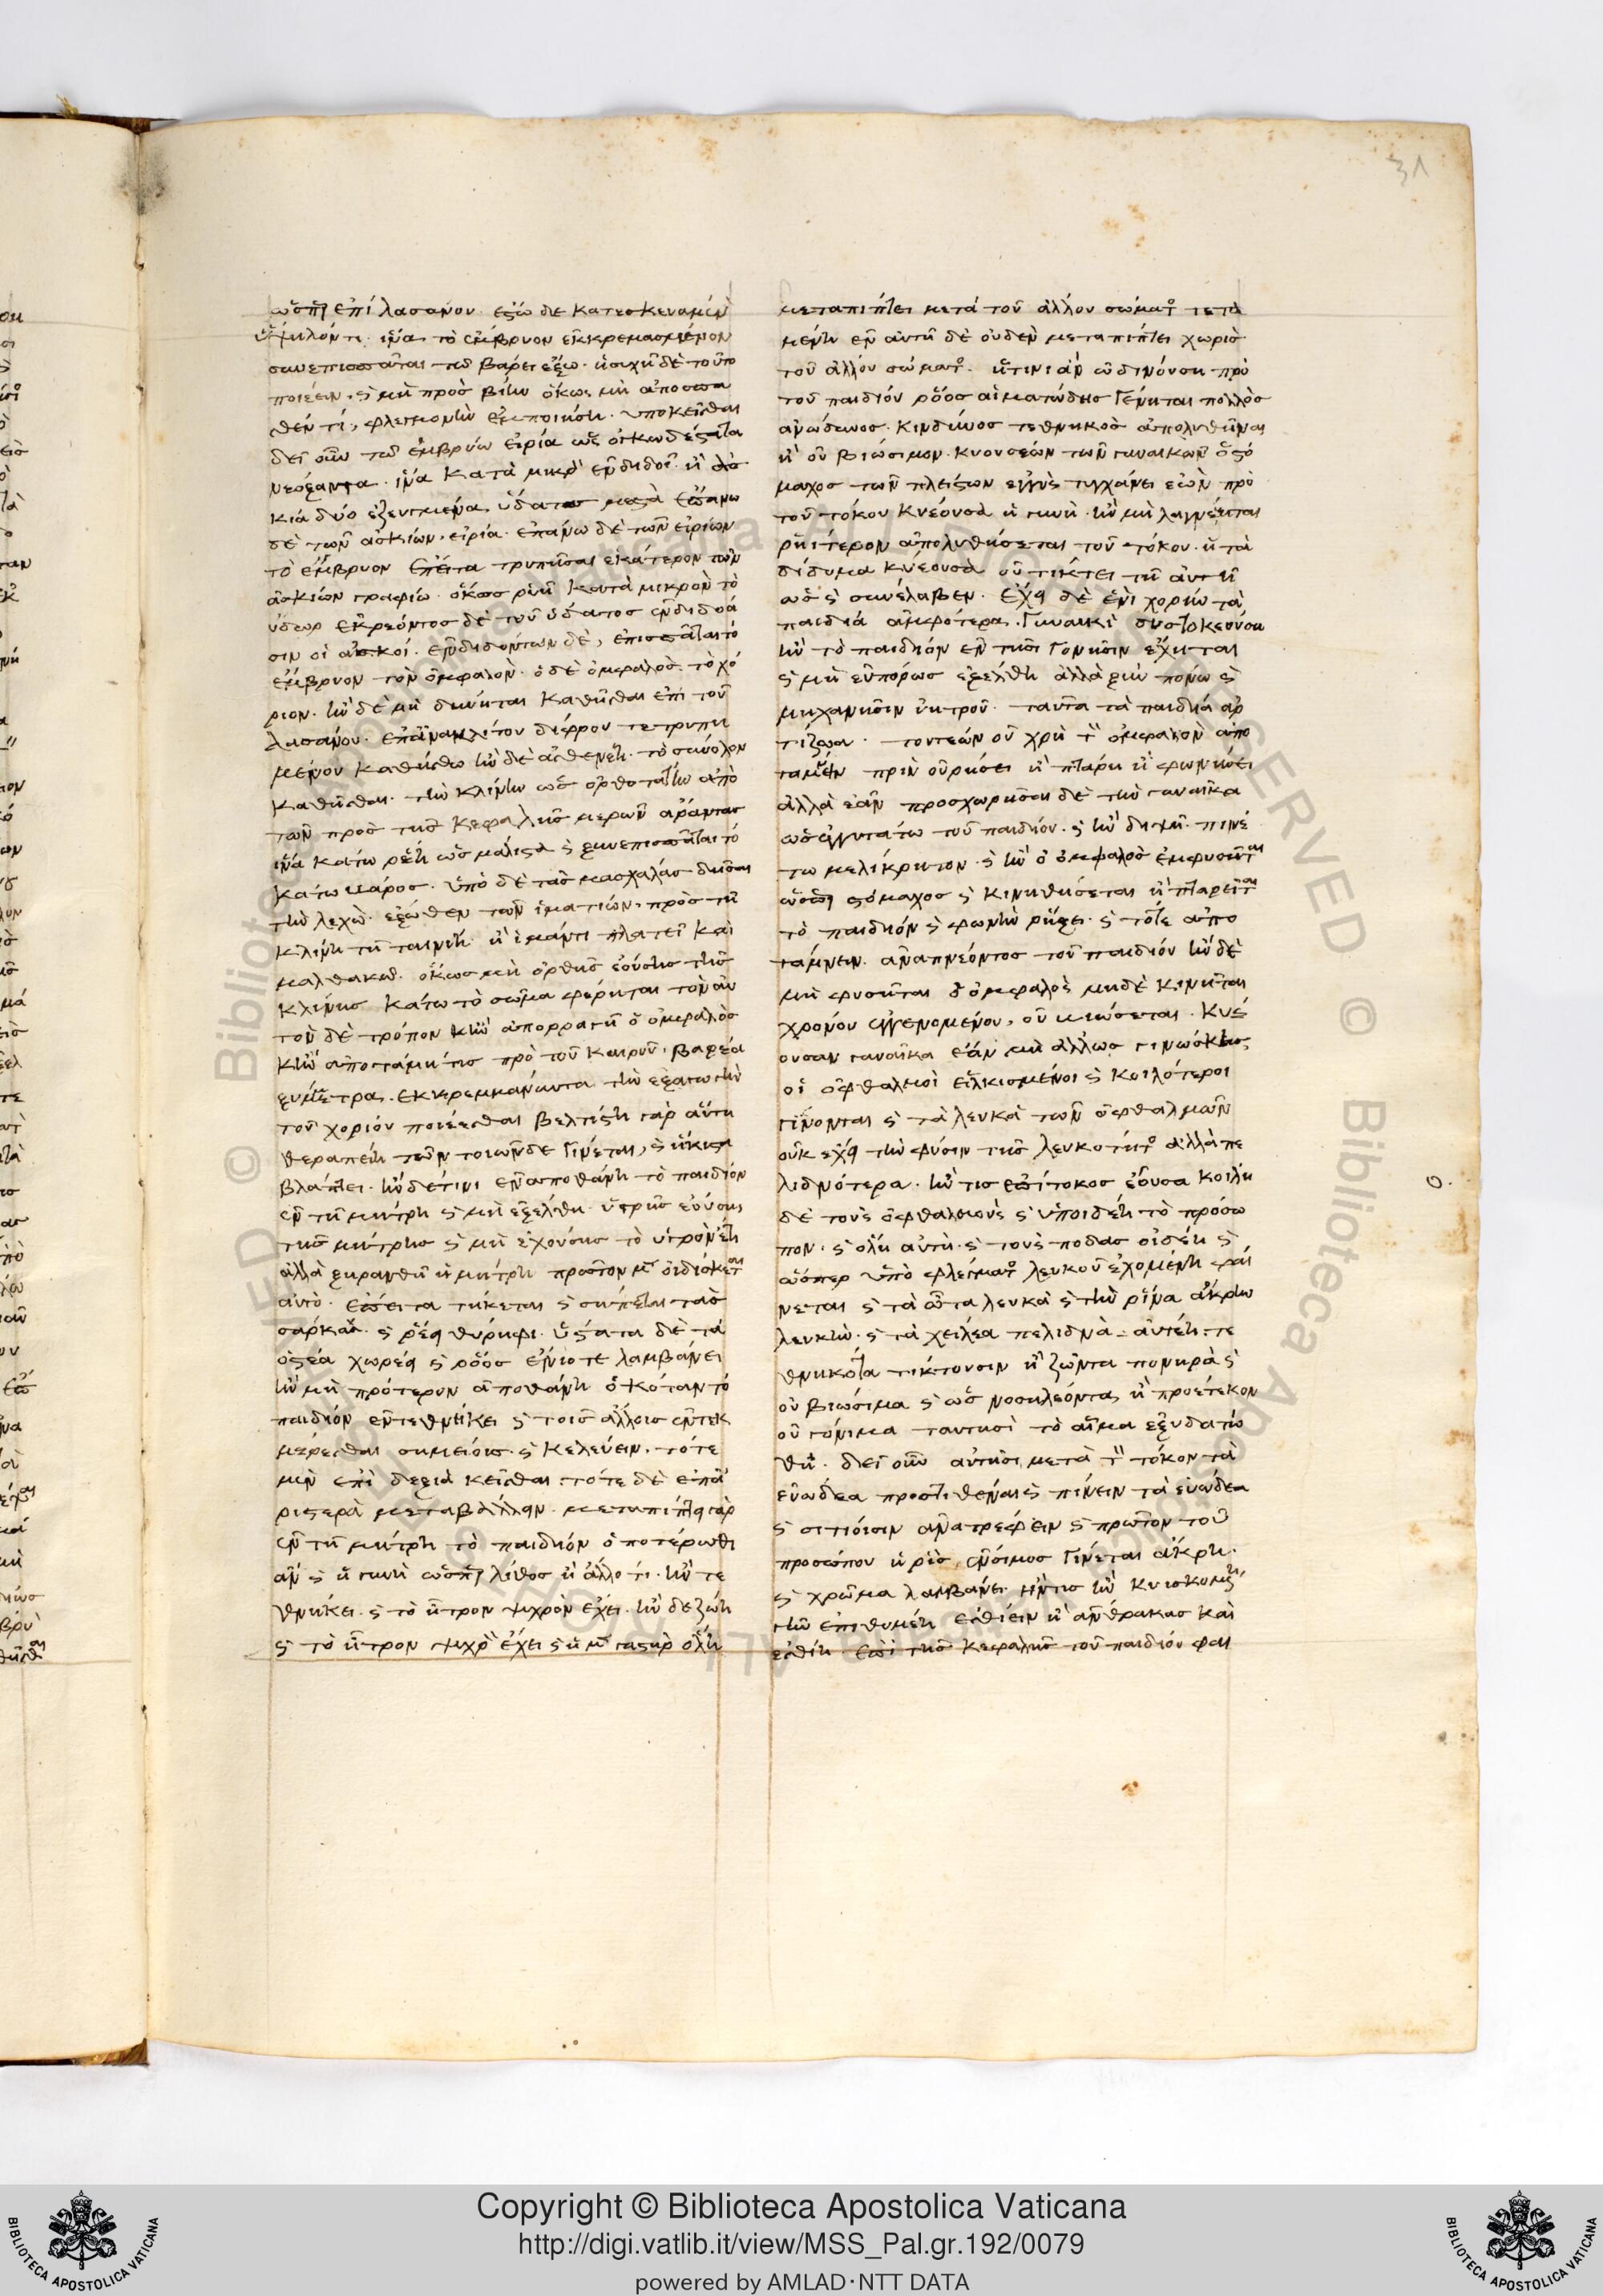 31
ὥσπερ ἐπὶ λασάνου. ἔξω δὲ κατεσκευαμένῳ
ὑψηλόν τι. ἵνα τὸ ἔμβρυον ἐκκρεμασμένον
συνεπισπᾶται τῷ βάρει ἔξω. ἡσυχῆ δὲ τοῦτο
ποιέειν. καὶ μὴ πρὸς βίην ὅκως μὴ ἀποσπα
σθέν τί, φλεγμονὴν ἐμποιήσῃ. ὑποκεῖσθαι
δεῖ οὖν τῷ ἐμβρύω εἰρία ὡς οἰκωδέστατα
νεόξαντα. ἵνα κατὰ μικρὸν ἐνδιδοῖ. ἢ ἀσ
κία δύο ἐζευγμένα ὕδατος μεστὰ ἐπάνω
δὲ τῶν ἀσκίων, εἰρία. ἐπάνω δὲ τῶν εἰρίων
τὸ ἔμβρυον ἔπειτα τρυπῆσαι ἑκάτερον τῶν
ἀσκίων γραφίω. ὅκως ῥυῆ κατὰ μικρὸν τὸ
ὕδωρ ἐκρέοντος δὲ τοῦ ὕδατος ἐνδιδοά
σιν οἱ ἀσκοί. ἐνδιδόντων δὲ, ἐπισπᾶται τό
ἔμβρυον τὸν ὀμφαλὸν. ὁ δὲ ὀμφαλὸς. τὸ χό
ριον. ἢν δὲ μὴ δύνηται καθῆσθαι ἐπὶ τοῦ
λασάνου. ἐπ' ἀνακλίτου δίφρου τετρυπη
μένου καθήσθω ἢν δὲ ἀσθενέῃ. τὸ σύνολον
καθῆσθαι. τὴν κλίνην ὡς ὀρθοτάτην ἀπὸ
τῶν πρὸς τῆς κεφαλῆς μερῶν ἄραντας
ἵνα κάτω ῥέῃ ὡς μάλιστα καὶ ξυνεπισπᾶται τό
κάτω βάρος. ὑπὸ δὲ τὰς μασχαλὰς δῆσαι
τὴν λεχὼ. ἔξωθεν τῶν ἱματίων. πρὸς τῇ
κλίνῃ τῇ ταινίῃ ἢ ἱμάντι πλατεῖ καὶ
μαλθακῷ. ὅκως μὴ ὀρθῆς ἐούσης τῆς
κλίνης κάτω τὸ σῶμα φέρηται τὸν αὐ
τὸν δὲ τρόπον κἢν ἀπορραγῇ ὁ ὀμφαλὸς
κἢν ἀποτάμῃ τις πρὸ τοῦ καιροῦ. βαρέα
ξύμμετρα. ἐκκρεμανύντα τὴν ἐξαγωγὴν
τοῦ χορίου ποιέεσθαι βελτίστη γὰρ αὕτη
θεραπείη τῶν τοιῶνδε γίνεται, καὶ ἥκιστα
βλάπτει. ἢν δέ τινι ἐναποθάνῃ τὸ παιδίον
ἐν τῇ μήτρῃ καὶ μὴ ἐξέλθῃ. ὑγρῆς ἐούσης
τῆς μήτρης καὶ μὴ ἐχούσης τὸ ὑγρὸν ἔτι
ἀλλὰ ξηρανθῇ ἡ μήτρη πρῶτον μὲν οἰδίσκεται
αὐτό. ἔπειτα τήκεται καὶ σήπεται τὰς
σάρκας. καὶ ῥέει θύρηφι. ὕστατα δὲ τὰ
ὀστέα χωρέει καὶ ῥόος ἐνίοτε λαμβάνει
ἢν μὴ πρότερον ἀποθάνῃ ὁκόταν τό
παιδίον ἐντεθνήκει καὶ τοῖς ἄλλοις ἐντεκ
μέρεσθαι σημείοις. καὶ κελεύειν. τότε
μὲν ἐπὶ δεξιὰ κεῖσθαι τότε δὲ ἐπ' ἀ
ριστερὰ μεταβάλλειν. μεταπίπτει γὰρ
ἐν τῇ μήτρῃ τὸ παιδίον ὁποτέρωθι
ἂν καὶ ἡ γυνὴ ὥσπερ λίθος ἢ ἄλλο τι. ἢν τε
θνήκει. καὶ τὸ ἦτρον ψυχρὸν ἔχει. ἢν δὲ ζώῃ
καὶ τὸ ἦτρον ψυχρὸν ἔχει καὶ ἡ μὲν γαστὴρ ὅλη
μεταπίπτει μετὰ τοῦ ἄλλου σώματος τετα
μένη ἐν αὐτῇ δὲ οὐδὲν μεταπίπτει χωρὶς
τοῦ ἄλλου σώματος. ᾗτινι ἂν ὠδινούσῃ πρὸ
τοῦ παιδίου ῥόος αἱματώδης γένηται πολλὸς
ἀνώδυνος. κίνδυνος τεθνηκὸς ἀπολυθῆναι
ἢ οὐ βιώσιμον. κυουσέων τῶν γυναικῶν ὁ στό
μαχος τῶν πλείστων ἐγγὺς τυγχάνει ἐὼν πρὸ
τοῦ τόκου κυέουσα ἡ γυνὴ. ἢν μὴ λαγνεύηται
ῥηίτερον ἀπολυθήσεται τοῦ τόκου. ἡ τὰ
δίδυμα κυέουσα οὐ τίκτει τῇ αὐτῇ
ὡς καὶ συνέλαβεν. ἔχει δὲ ἑνὶ χορίω τὰ
παιδία ἀμφότερα. γυναικὶ δυστοκεούσῃ
ἢν τὸ παιδίον ἐν τῇσι γονῇσιν ἔχηται
καὶ μὴ εὐπόρως ἐξέλθῃ ἀλλὰ ξὺν πόνω καὶ
μηχανῇσιν ἰητροῦ. ταῦτα τὰ παιδία ἀρ
τίζωα. τουτέων οὐ χρὴ τὸν ὀμφαλὸν ἀπο
ταμέειν πρὶν οὐρήσει ἢ πτάρῃ ἢ φωνήσει
ἀλλὰ ἐᾶν προσχωρῆσαι δὲ τὴν γυναῖκα
ὡς ἐγγυτάτω τοῦ παιδίου. καὶ ἢν διψῇ. πινέ
τω μελίκρητον. καὶ ἢν ὁ ὀμφαλὸς ἐμφυσῆται
ὥσπερ στόμαχος καὶ κινηθήσεται ἢ πταρεῖται
τὸ παιδίον καὶ φωνὴν ῥήξει. καὶ τότε ἀπο
τάμνειν. ἀναπνέοντος τοῦ παιδίου ἢν δὲ
μὴ φυσῆται ὁ ὀμφαλὸς μηδὲ κινῆται
χρόνου ἐγγενομένου, οὐ βιώσεται. κυέ
ουσαν γυναῖκα ἐὰν μὴ ἄλλως γινώσκῃς
οἱ ὀφθαλμοὶ εἱλκισμένοι καὶ κοιλότεροι
γίνονται καὶ τὰ λευκὰ τῶν ὀφθαλμῶν
οὐκ ἔχει τὴν φύσιν τῆς λευκότητος ἀλλὰ πε
λιδνότερα. ἥν τις ἐπίτοκος ἐοῦσα κοιλῃ
δὲ τοὺς ὀφθαλμοὺς καὶ ὑποιδέῃ τὸ πρόσω
πον. καὶ ὅλη αὐτή. καὶ τοὺς πόδας οἰδέῃ καὶ
ὥσπερ ὑπὸ φλέγματος λευκοῦ ἐχομένη φαί
νεται καὶ τὰ ὦτα λευκὰ καὶ τὴν ῥῖνα ἄκρην
λευκὴν. καὶ τὰ χείλεα πελιδνὰ. αὐτέη. τε
θνηκότα τίκτουσιν ἢ ζῶντα πονηρὰ καὶ
οὐ βιώσιμα καὶ ὡς νοσηλεόντα, ἢ προέτεκον
οὐ γόνιμα ταύτῃσι τὸ αἷμα ἐξυδατώ
θη. δεῖ οὖν αὐτῇσι μετὰ τὸν τόκον τὰ
εὐώδεα προστιθέναι καὶ πίνειν τὰ εὐώδεα
καὶ σιτίοισιν ἀνατρέφειν καὶ πρῶτον τοῦ
προσώπου ἡ ῥὶς, ἐνόσιμος γίνεται ἄκρη.
καὶ χρῶμα λαμβάνει. ἥντις ἢν κυισκομένη
τὴν ἐπιθυμέῃ ἐσθίειν ἢ ἄνθρακας καὶ
ἐσθίῃ ἐπὶ τῆς κεφαλῆς τοῦ παιδίου φαι
Copyright © Biblioteca Apostolica Vaticana
http://digi.vatlib.it/view/MSS_Pal.gr.192/0079
powered by AMLAD·NTT DATA
BIBLIOTECA APOSTOLICA VATICANA
BIBLIOTECA APOSTOLICA VATICANA